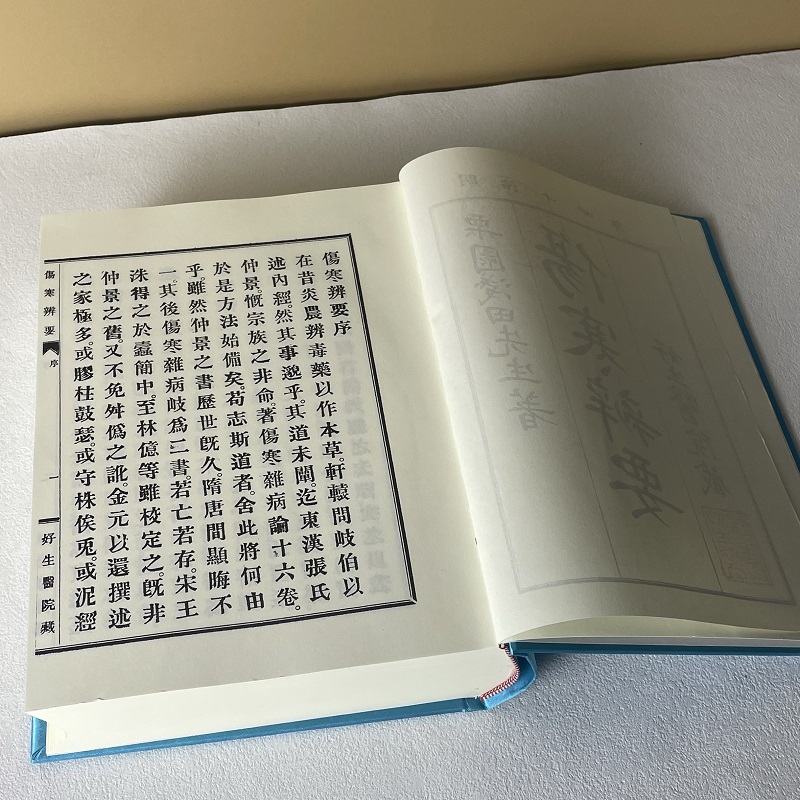 傷寒辨要序
在昔炎農辨毒藥以作本草。軒轅問岐伯以
述內經。然其事邈乎。其道未闡。迄東漢張氏
仲景。慨宗族之非命。著傷寒雜病論十六卷。
於是方法始備矣。苟志斯道者。舍此將何由
乎。雖然仲景之書歷世既久。隋唐間顯晦不
一。其後傷寒雜病岐爲二書。若亡若存。宋王
洙得之於蠹簡中。至林億等雖校定之。既非
仲景之舊。又不免舛僞之訛。金元以還撰述
之家極多。或膠柱鼓瑟。或守株俟兎。或泥經
傷寒辨要
序
一
好生醫院藏
傷寒辨要
栗園淺田先生著